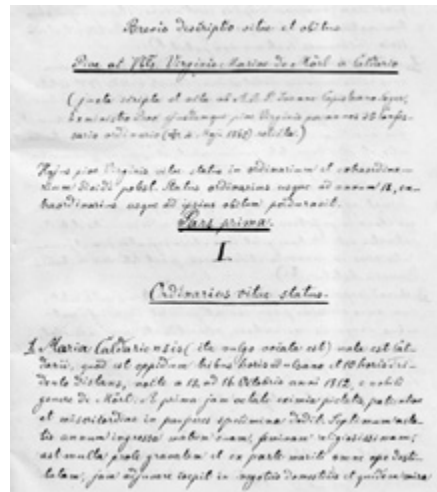 Brevis descriptio vitae et obitus
Piae ac Ven. Virginis Mariae de Mörl a Caldario
(juxta scripta et acta ab A. R. P. Joanne Capistrano
ejusdemque piae Virginis per annos confes-
sario ordinario
Hujus piae Virginis vitae status in ordinarium et extraordina-
rium dividi potest. Status ordinarius usque ad annum 18, ex-
traordinarius usque ad ipsius obitum perduravit.
Pars prima.
I.
Ordinarius vitae status.
1. Maria Caldariensis (ita vulgo vocata est) nata est Cal-
darii, quod est oppidum tribus horis Bulsano et 10 horis Tri-
dento distans, nocte a 15 ad 16 Octobris anni 1812, e nobili
genere de Mörl. E prima jam aetate eximia pietatis, patientiae
et misericordiae in pauperes specimina dedit. Septimum aeta-
tis annum ingressa matrem suam, feminam religiosissimam;
ast multa prole gravatam et ex parte mariti omni ope desti-
tutam, jam adjuvare coepit in negotiis domesticis et quidem mira